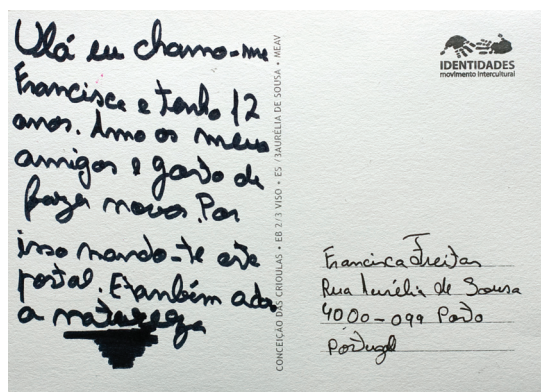 Olá eu chamo-me
Francisca e tenho 12
anos. Amo os meus
amigos e gosto de
fazer novos. Por
isso mando-te este
postal. E também adoro
a natureza
CONCEIÇÃO DAS CRIOULAS • EB 2/3 VISO • ES /3AURÉLIA DE SOUSA • MEAV
IDENTIDADES
movimento intercultural
Francisca Freitas
Rua Aurélia de Sousa
4000-099 Porto
Portugal